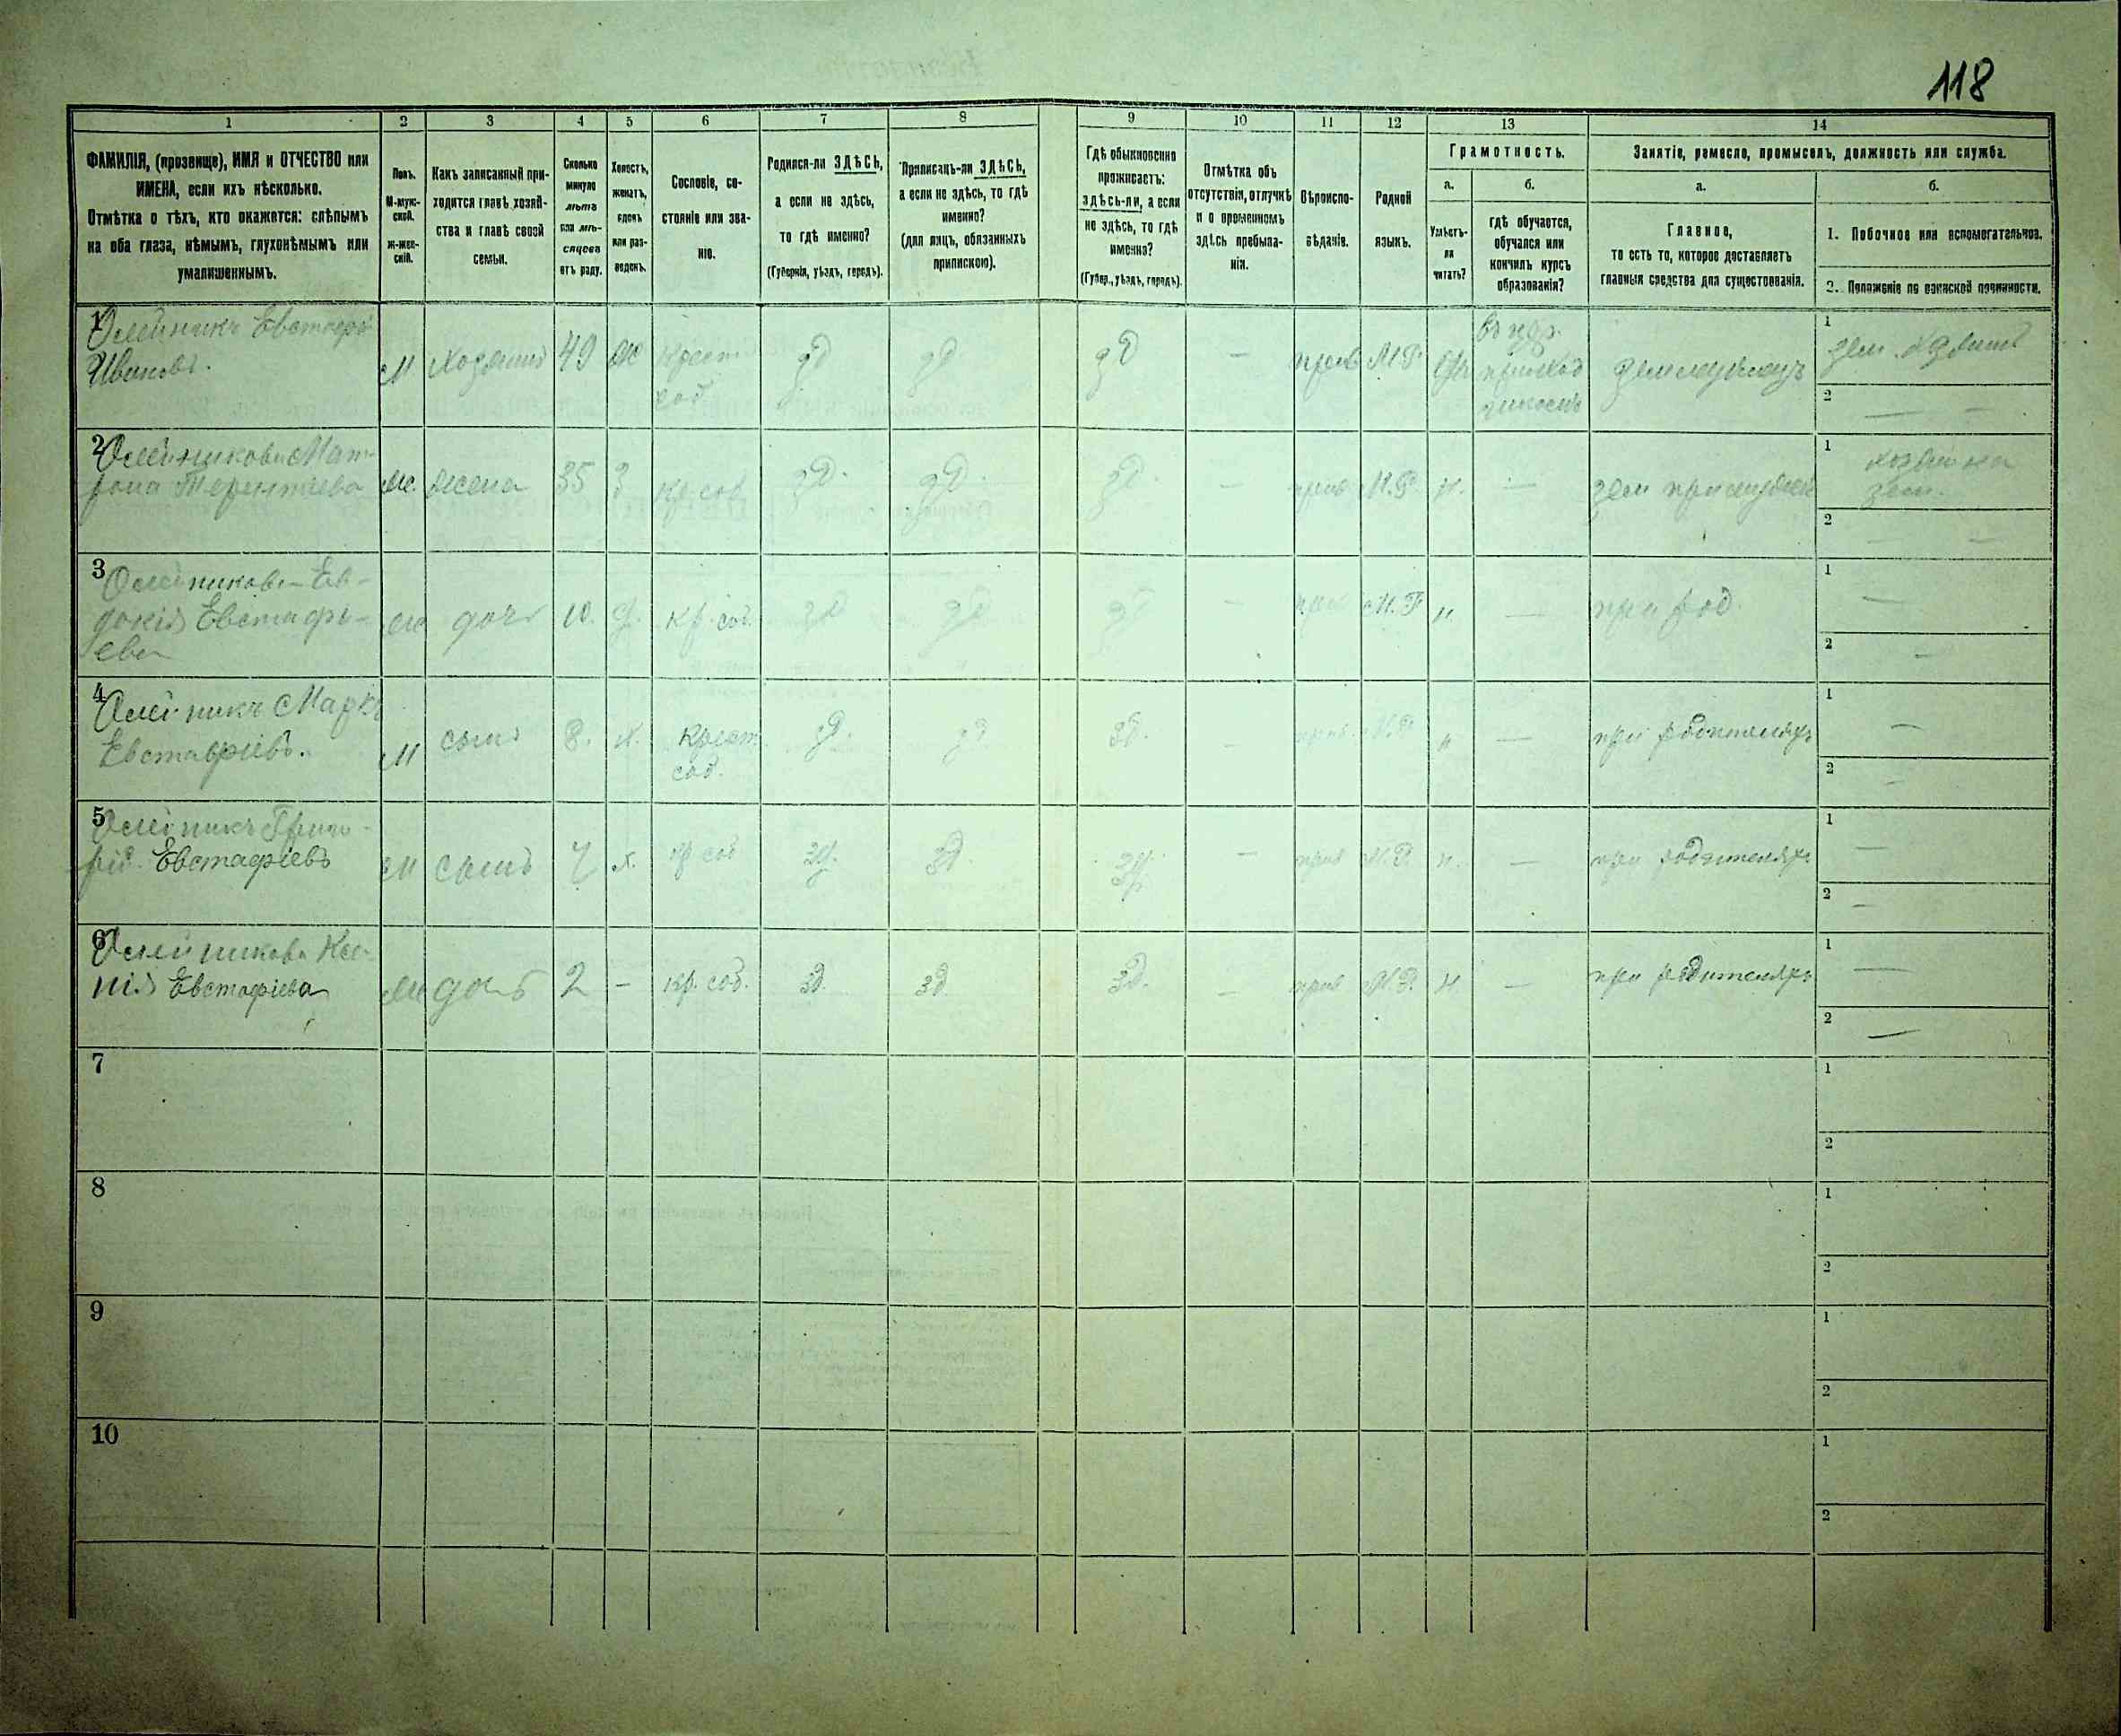 118
1 2 3 4 5 6 7 8 9 10 11 12 13 14
ФАМИЛІЯ, (прозвище), ИМЯ и ОТЧЕСТВО или
ИМЕНА, если ихъ нѣсколько.
Отмѣтка о тѣхъ, кто окажется: слѣпымъ
на оба глаза, нѣмымъ, глухонѣмымъ или
умалишеннымъ.
Полъ.
М-муж-
ской.
ж-жен-
скій.
Какъ записанный при-
ходится главѣ хозяй-
ства и главѣ своей
семьи.
Сколько
минуло
лѣтъ
или мѣ-
сяцевъ
отъ роду.
Холостъ,
женатъ,
вдовъ
или раз-
веденъ.
Сословіе, со-
стояніе или зва-
ніе.
Родился-ли ЗДѢСЬ,
а если не здѣсь,
то гдѣ именно?
(Губернія, уѣздъ, городъ).
Приписанъ-ли ЗДѢСЬ,
а если не здѣсь, то гдѣ
именно?
(для лицъ, обязанныхъ
припискою).
Гдѣ обыкновенно
проживаетъ:
здѣсь-ли, а если
не здѣсь, то гдѣ
именно?
(Губер., уѣздъ, городъ).
Отмѣтка объ
отсутствіи, отлучкѣ
и о временномъ
здѣсь пребыва-
ніи.
Вѣроиспо-
вѣданіе.
Родной
языкъ.
Грамотность.
а.
Умѣетъ-
ли
читать?
б.
гдѣ обучается,
обучался или
кончилъ курсъ
образованія?
Занятіе, ремесло, промыселъ, должность или служба.
а.
Главное,
то есть то, которое доставляетъ
главныя средства для существованія.
б.
1. Побочное или вспомогательное.
2. Положеніе по воинской повинности.
1 Олейникъ Евстафі
Ивановъ. М хозяинъ 49 ж крест. соб. зд зд зд — прав М.Р.
приход
земледѣлецъ
1
2 —
2 Олейникова Мат-
рона Терентьева ж. жена 35 З кр. соб зд. зд. зд. — прав М.Р. н. —
1 хозяйка
зем.
2 — —
3 Олейникова Ев-
докія Евстафі-
ева ж дочь 10. кр. соб. зд зд зд — прав М.Р н. — при род.
1 —
2 —
4 Олейникъ Маркъ
Евстафіевъ. М сынъ 8. х. крест. соб. зд. зд зд. — прав. М.Р н — при родителяхъ
1 —
2 —
5 Олейникъ Григо-
рій Евстафіевъ М сынъ х. кр соб зд. зд зд. — прав М.Р. н. — при родителяхъ
1 —
2 —
6 Олейникова Ксе-
нія Евстафіева ж дочь 2 — кр. соб. зд. зд зд. — прав М.Р. н — при родителяхъ
1 —
2 —
7 1
2
8 1
2
9 1
2
10 1
2